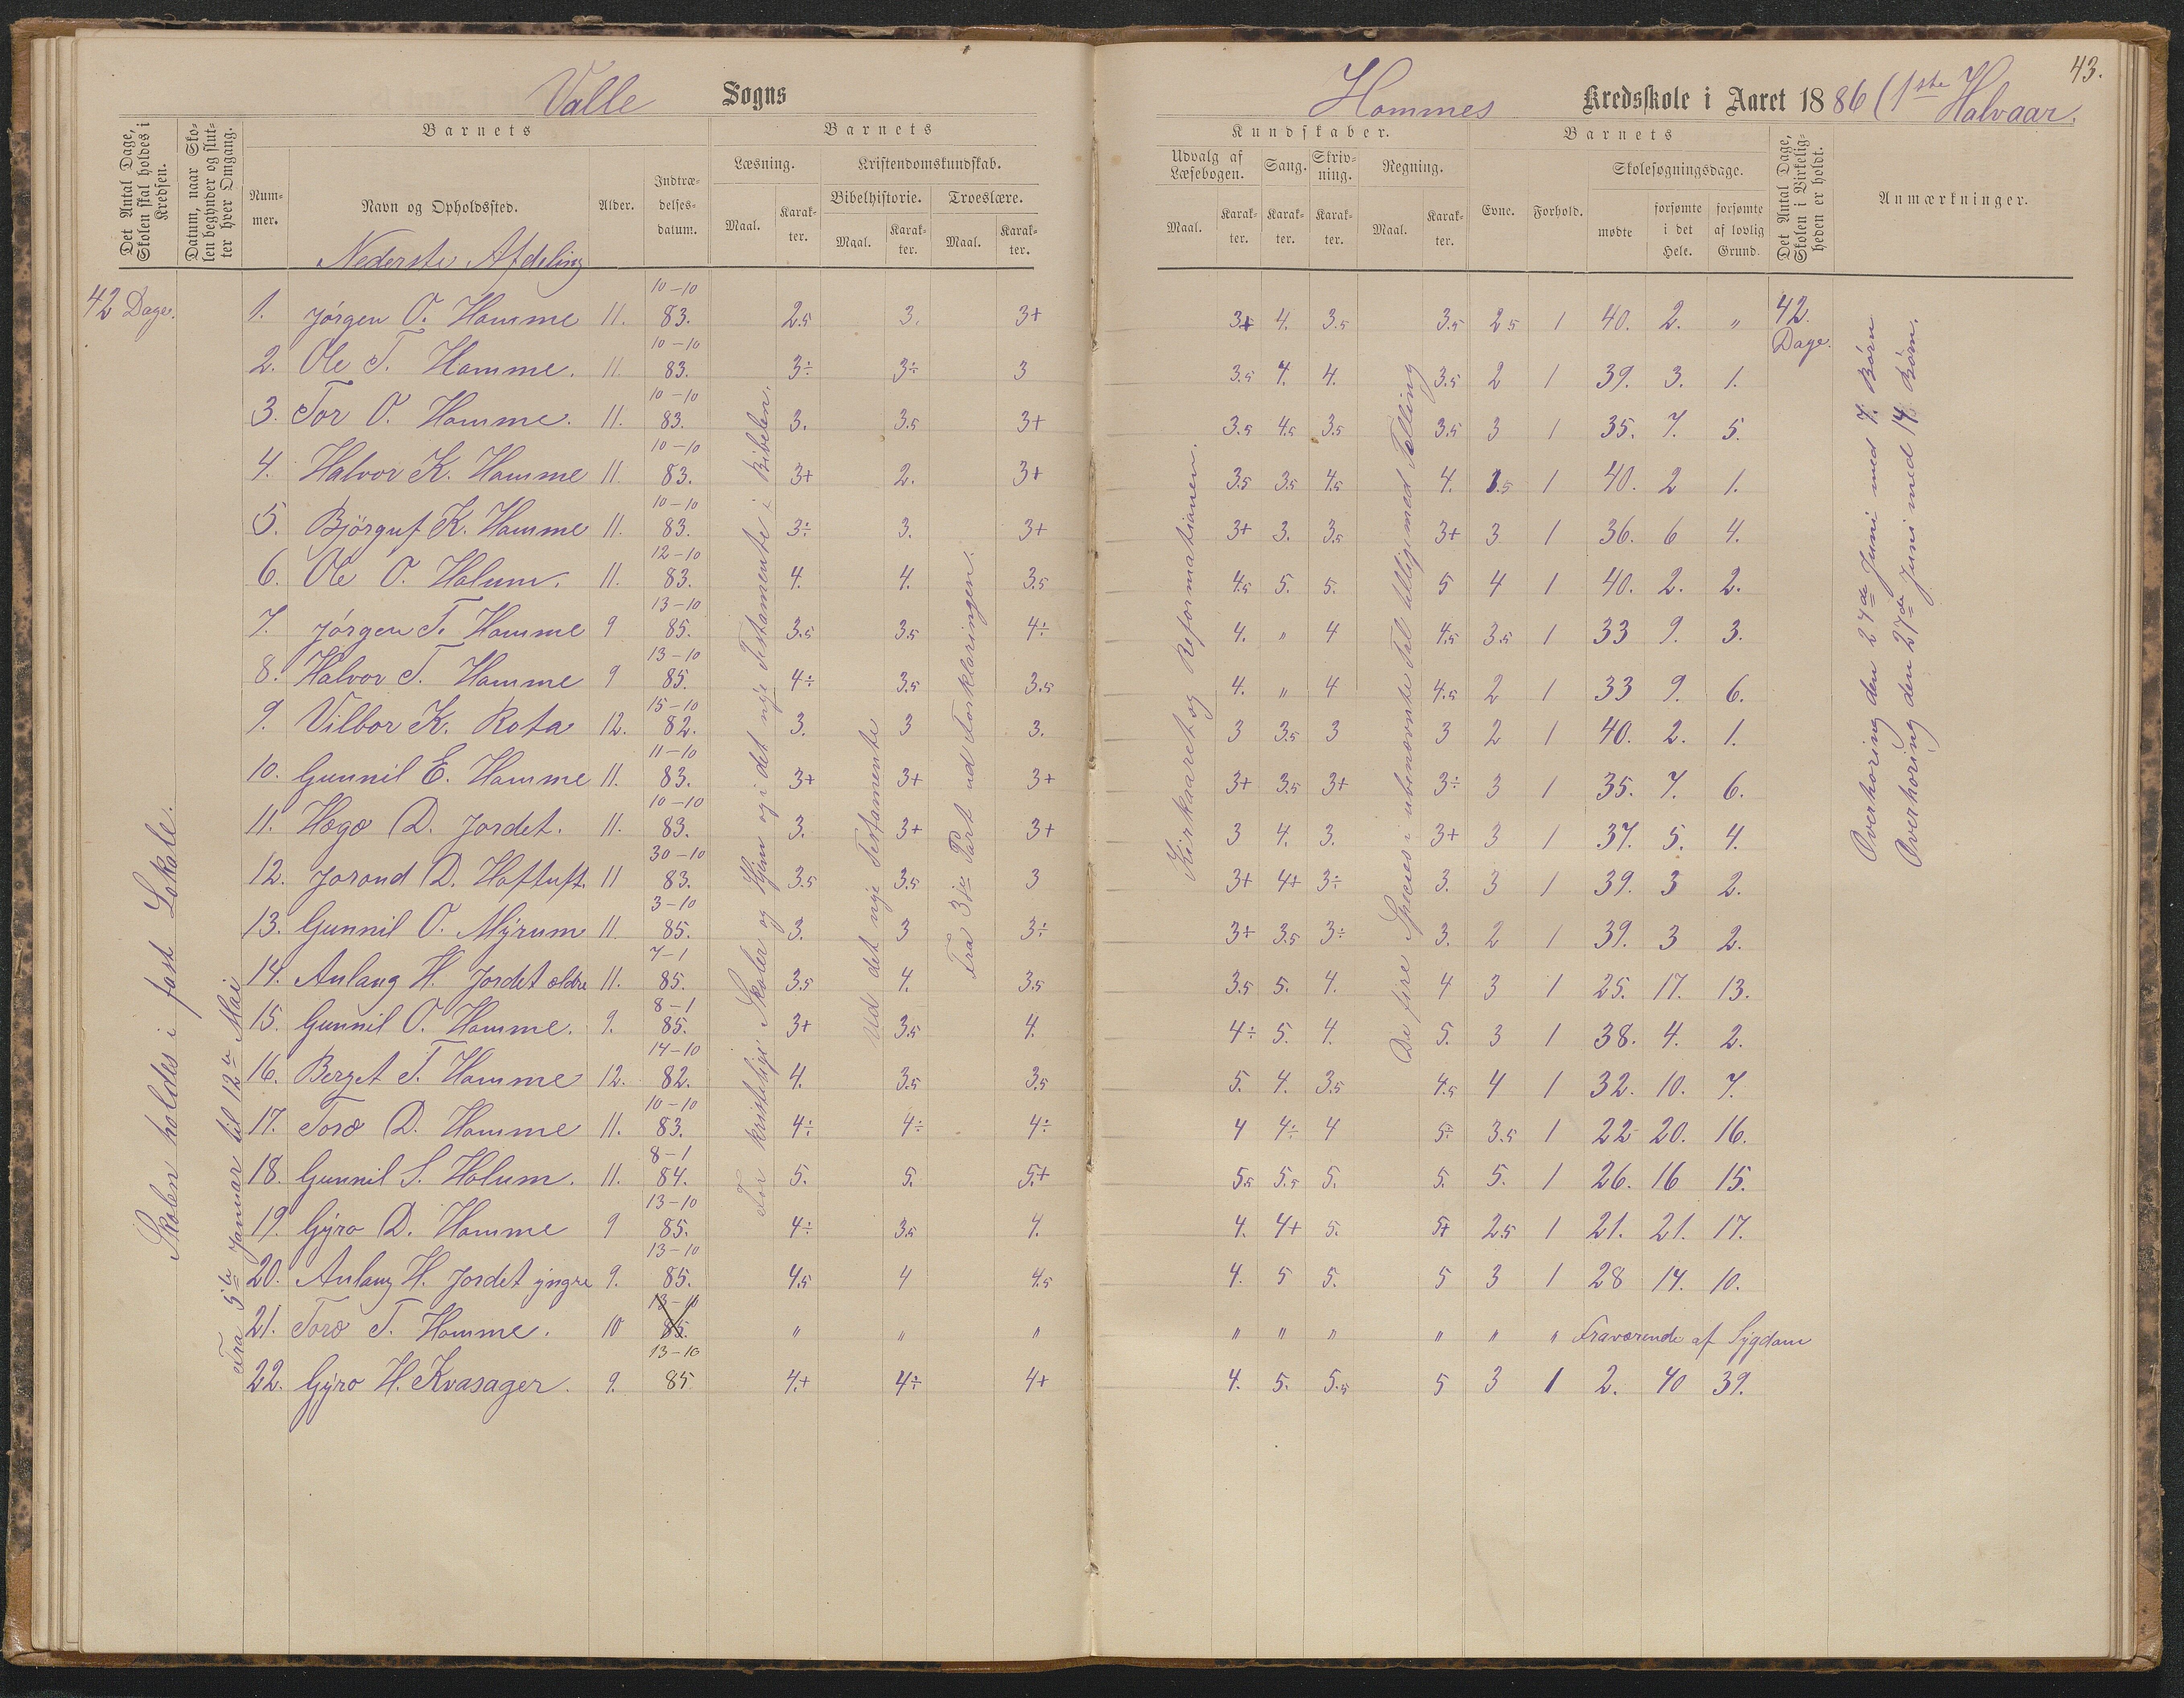 Valle Sogns
Hommes Kredsskole i Aaret 1886 (1ste Halvaar.
43.
Det Antal Dage, Skolen skal holdes i Kredsen.
Datum, naar Skolen begynder og slutter hver Omgang.
Barnets
Nummer.
Navn og Opholdssted.
Alder.
Indtrædelsesdatum.
Barnets
Læsning.
Maal.
Karakter.
Kristendomskundskab.
Bibelhistorie.
Maal.
Karakter.
Troeslære.
Maal.
Karakter.
Kundskaber.
Udvalg af Læsebogen.
Maal.
Karakter.
Sang.
Karakter.
Skrivning.
Karakter.
Regning.
Maal.
Karakter.
Barnets
Evne.
Forhold.
Skolesøgningsdage.
mødte
forsømte i det Hele.
forsømte af lovlig Grund.
Det Antal Dage, Skolen i Virkeligheden er holdt.
Anmærkninger.
Nederste Afdeling
42 Dage.
Skolen holdes i fast Lokale.
Fra 5te Januar til 12te Mai
1. Jørgen O. Homme 11. 10-10 83. 2.5 3. 3+ 3+ 4. 3.5 3.5 2.5 1 40. 2. " 42. Dage.
2. Ole T. Homme. 11. 10-10 83. 3÷ 3÷ 3 3.5 4. 4. 3.5 2 1 39. 3. 1.
3. Tor O. Homme. 11. 10-10 83. 3. 3.5 3+ 3.5 4.5 3.5 3.5 3 1 35. 7. 5.
4. Halvor K. Homme 11. 10-10 83. 3+ 2. 3+ 3.5 3.5 4.5 4. 3.5 1 40. 2 1.
5. Bjørguf K. Homme 11. 10-10 83. 3÷ 3. 3+ 3+ 3. 3.5 3+ 3 1 36. 6 4.
6. Ole O. Holum. 11. 12-10 83. 4. 4. 3.5 4.5 5. 5. 5 4 1 40. 2. 2.
7. Jørgen T. Homme 9 13-10 85. 3.5 3.5 4÷ 4. " 4 4.5 3.5 1 33 9. 3.
8. Halvor T. Homme 9 13-10 85. 4÷ 3.5 3.5 4. " 4 4.5 2 1 33 9. 6.
9. Vilbor K. Rota 12. 15-10 82. 3. 3 3. 3 3.5 3 3 2 1 40. 2. 1.
10. Gunnil E. Homme 11. 11-10 83. 3+ 3+ 3+ 3+ 3.5 3+ 3÷ 3 1 35. 7. 6.
11. Hægo D. Jordet. 11. 10-10 83. 3. 3+ 3+ 3 4. 3. 3+ 3 1 37. 5. 4.
12. Jorond D. Hoftuft. 11 30-10 83. 3.5 3.5 3 3+ 4+ 3÷ 3. 3 1 39. 3 2.
13. Gunnil O. Myrum 11 3-10 85. 3. 3 3÷ 3+ 3.5 3÷ 3. 2 1 39. 3 2.
14. Anlaug H. Jordet ældre 11. 7-1 85. 3.5 4. 3.5 3.5 5. 4. 4 3 1 25. 17. 13.
15. Gunnil O. Homme. 9. 8-1 85. 3+ 3.5 4. 4÷ 5. 4. 5. 3 1 38. 4. 2.
16. Berget T. Homme 12. 14-10 82. 4. 3.5 3.5 5. 4. 3.5 4.5 4 1 32. 10. 7.
17. Toro D. Homme 11. 10-10 83. 4÷ 4÷ 4÷ 4 4÷ 4 5÷ 3.5 1 22 20. 16.
18. Gunnil S. Holum. 11. 8-1 84. 5. 5. 5+ 5.5 5.5 5. 5. 5. 1 26. 16 15.
19. Gyro D. Homme 9 13-10 85. 4÷ 3.5 4. 4. 4+ 5. 5+ 2.5 1 21. 21. 17.
20. Anlaug H. Jordet yngre 9. 13-10 85. 4.5 4 4.5 4. 5 5. 5 3 1 28 14. 10.
21. Toro T. Homme. 10 13-10 85. " " " " " " " " " Fraværende af Sygdom
22. Gyro H. Kvasager. 9. 13-10 85 4.+ 4÷ 4+ 4. 5. 5.5 5 3 1 2. 40 39.
For kristelige Skoler og Hjem og i det nye Testamente i Bibelen.
Ud det nye Testamente
Fra 3die Part ud Forklaringen.
Kirkaaret og Reformationen.
De fire Species i ubenævnte Tal tilligemed Tælling
Overhøring den 24de Juni med 7. Børn
Overhøring den 27de Juni med 14 Børn.